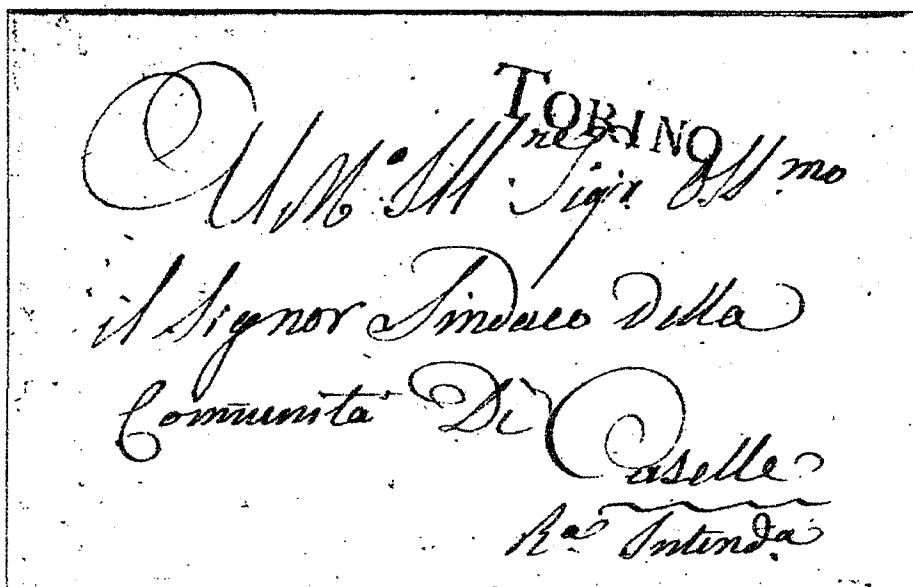 TORINO
Al M.º Ill.re Sigr. Oss.mo
il Signor Sindaco Della
Comunità Di Caselle
R.a Intend.a